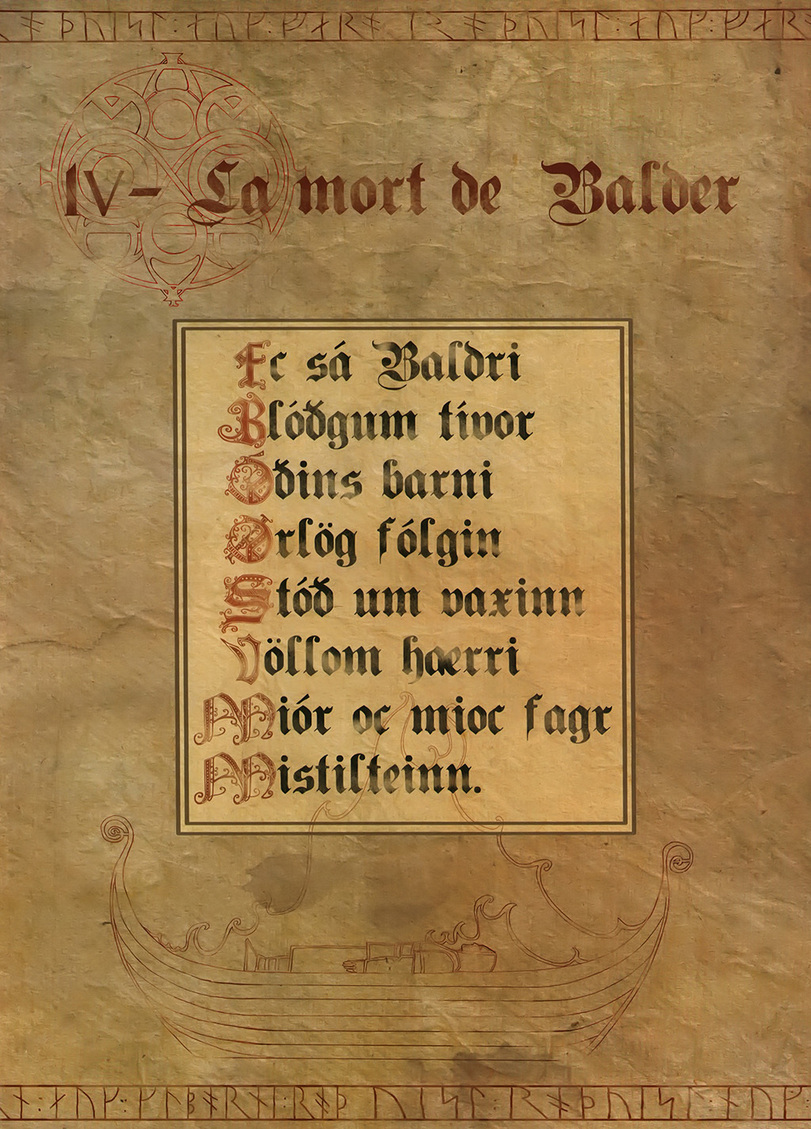 IV- La mort de Balder
Ec sá Baldri
Blóðgum tívor
Óðins barni
Ørlög fólgin
Stóð um vaxinn
Völlom haerri
Miór oc mioc fagr
Mistilteinn.